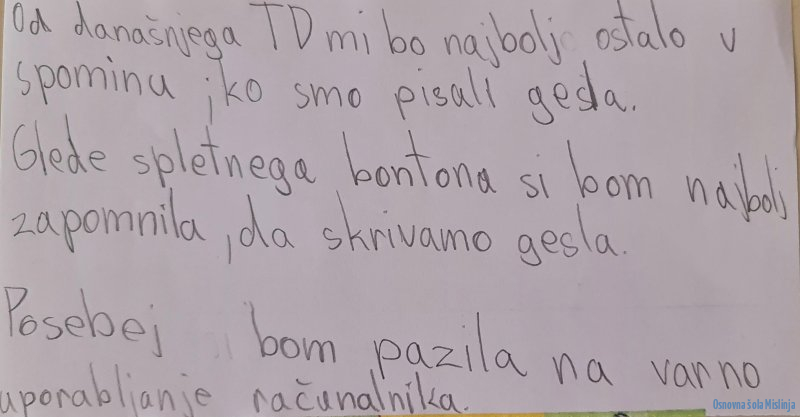 Od današnjega TD mi bo najbolj ostalo v
spominu ,ko smo pisali gesla.
Glede spletnega bontona si bom najbolj
zapomnila, da skrivamo gesla.
Posebej bom pazila na varno
uporabljanje računalnika.
Osnovna šola Mislinja